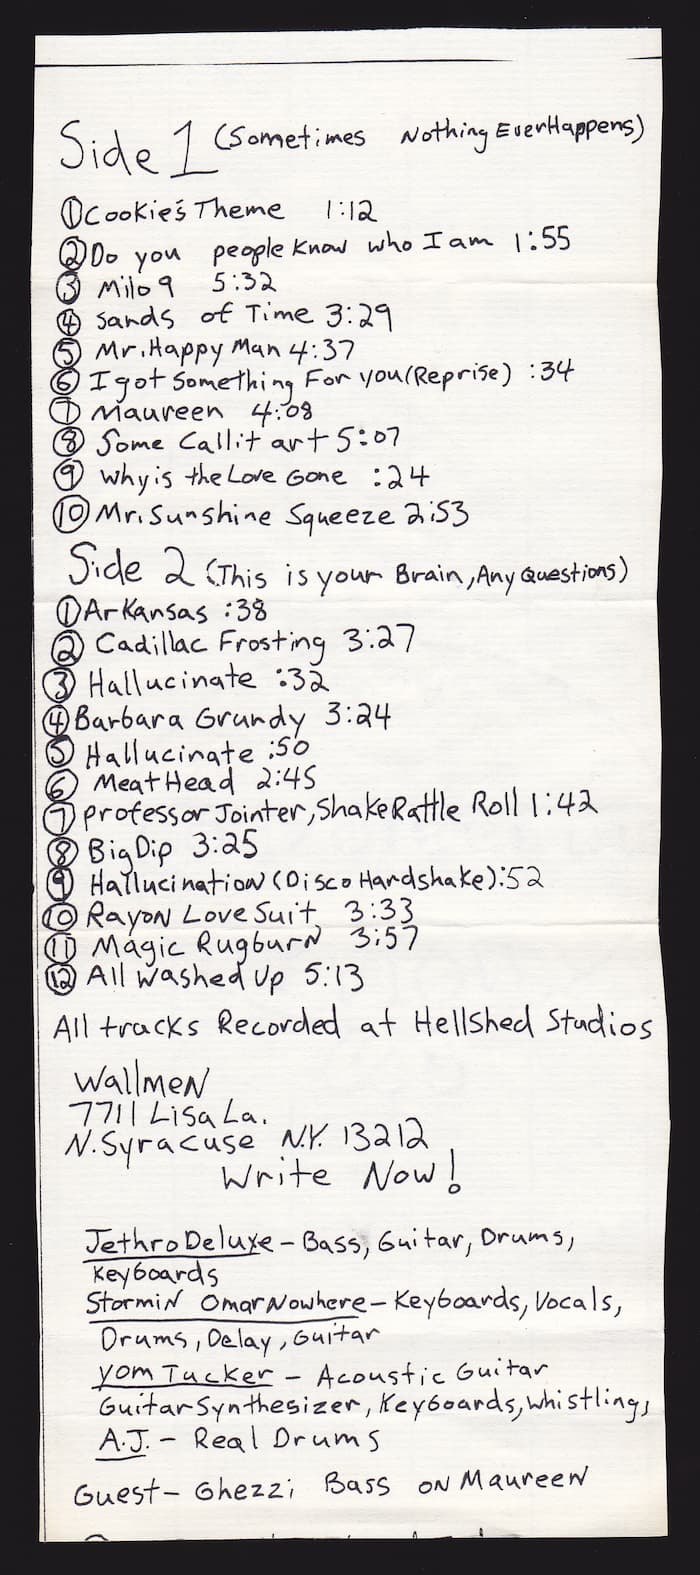 Side 1 (Sometimes Nothing Ever Happens)
① Cookie's Theme 1:12
② Do you people know who I am 1:55
③ Milo 9 5:32
④ Sands of Time 3:29
⑤ Mr. Happy Man 4:37
⑥ I got Something For you (Reprise) :34
⑦ Maureen 4:08
⑧ Some Call it art 5:07
⑨ Why is the Love Gone :24
⑩ Mr. Sunshine Squeeze 2:53
Side 2 (This is your Brain, Any Questions)
① Arkansas :38
② Cadillac Frosting 3:27
③ Hallucinate :32
④ Barbara Grundy 3:24
⑤ Hallucinate :50
⑥ Meat Head 2:45
⑦ Professor Jointer, Shake Rattle Roll 1:42
⑧ Big Dip 3:25
⑨ Hallucination (Disco Hardshake) :52
⑩ Rayon Love Suit 3:33
⑪ Magic Rugburn 3:57
⑫ All Washed Up 5:13
All tracks Recorded at Hellshed Studios
Wallmen
7711 Lisa La.
N. Syracuse N.Y. 13212
Write Now!
Jethro Deluxe - Bass, Guitar, Drums,
Keyboards
Stormin Omar Nowhere - Keyboards, Vocals,
Drums, Delay, Guitar
Yom Tucker - Acoustic Guitar
Guitar Synthesizer, Keyboards, Whistling,
A.J. - Real Drums
Guest - Ghezzi Bass on Maureen